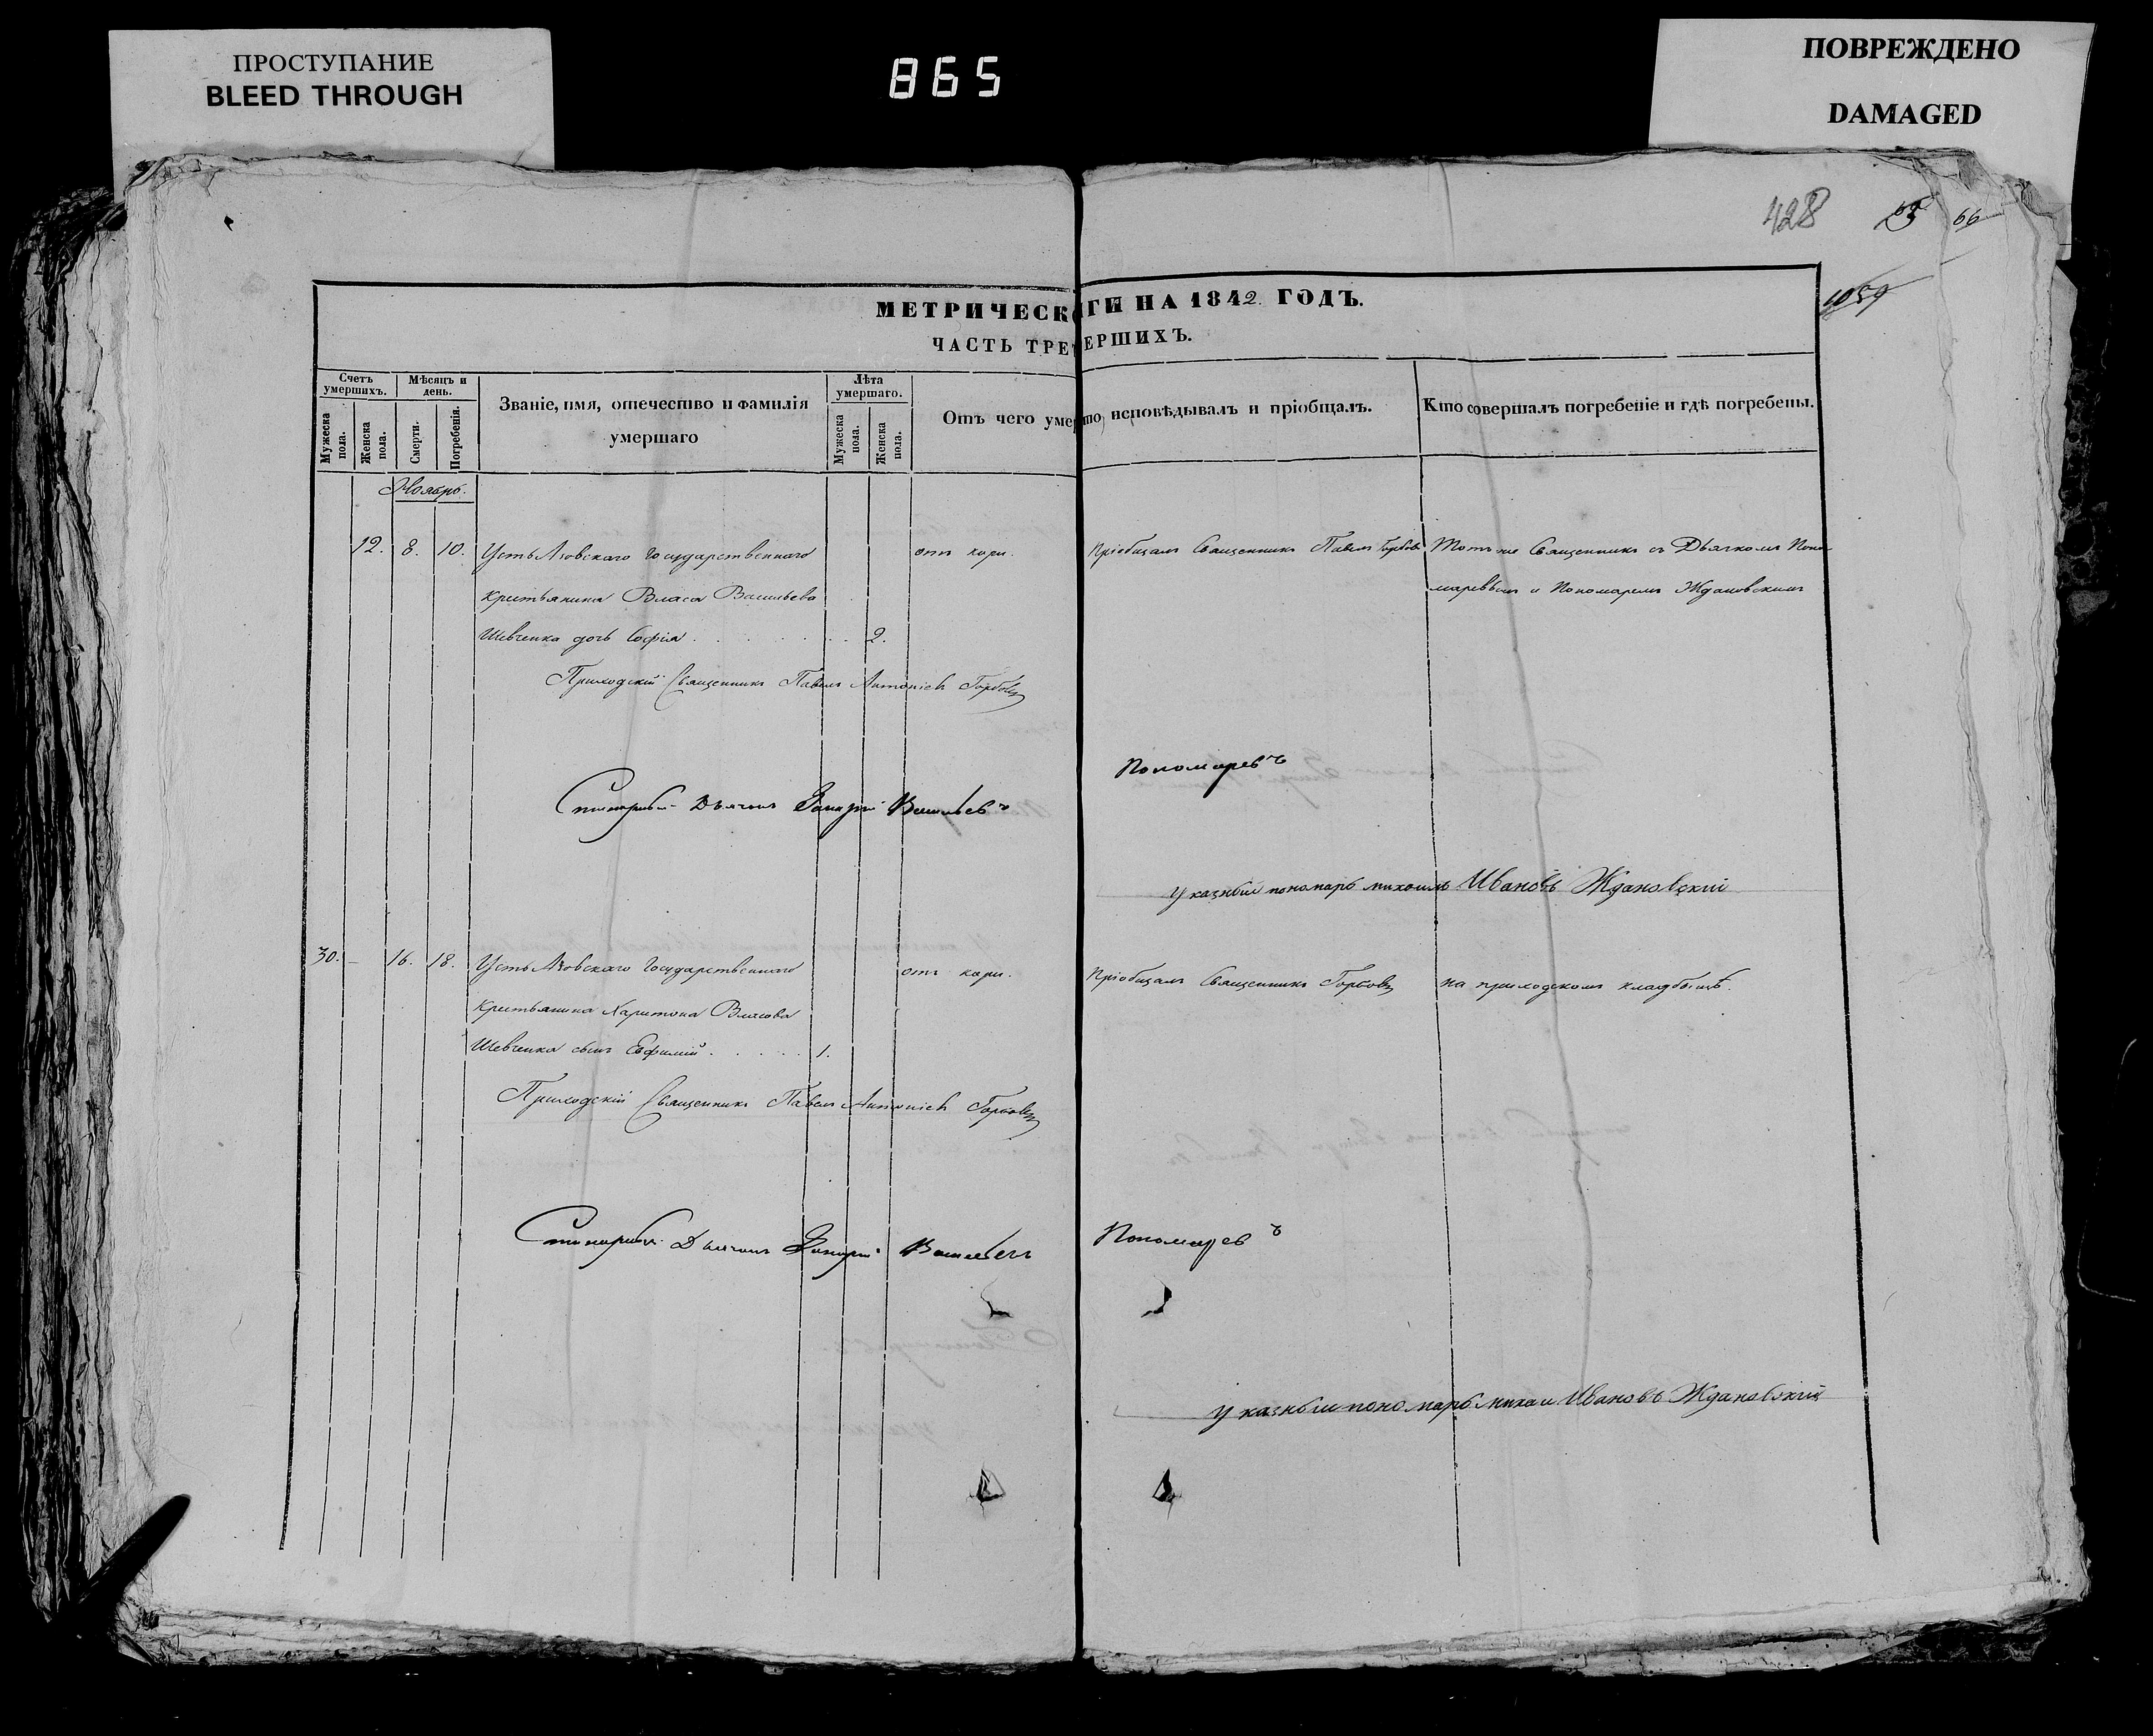 ПРОСТУПАНИЕ
BLEED THROUGH
865
ПОВРЕЖДЕНО
DAMAGED
428
66
1059
МЕТРИЧЕСК ГИ НА 1842 ГОДЪ.
ЧАСТЬ ТРЕ ЕРШИХЪ.
Счетъ умершихъ.
Мужеска пола.
Женска пола.
Мѣсяцъ и день.
Смерти.
Погребенія.
Званіе, имя, отечество и фамилія
умершаго
Лѣта умершаго.
Мужеска пола.
Женска пола.
Отъ чего умер
то исповѣдывалъ и пріобщалъ.
Кто совершалъ погребеніе и гдѣ погребены.
Ноябрь.
12. 8. 10. Усть Азовскаго Государственнаго отъ кори. Пріобщалъ Священникъ Павелъ Тотъ же Священникъ съ Дьячкомъ Поно-
Крестьянина Власа Васильева маревымъ и Пономаремъ Ждановскимъ
Шевченка дочь Софія 2.
Приходскій Священникъ Павелъ
Дьячокъ Захарій Васильевъ Пономаревъ
Указный пономарь михаилъ Ивановъ Ждановский
30. – 16. 18. Усть Азовскаго Государственнаго отъ кори. Пріобщалъ Священникъ на приходскомъ кладбищѣ.
Крестьянина Харитона Власова
Шевченка сынъ Евфимій 1.
Приходскій Священникъ Павелъ
Дьячокъ Захарій Васильевъ Пономаревъ
Указный пономарь михаи Ивановъ Ждановский